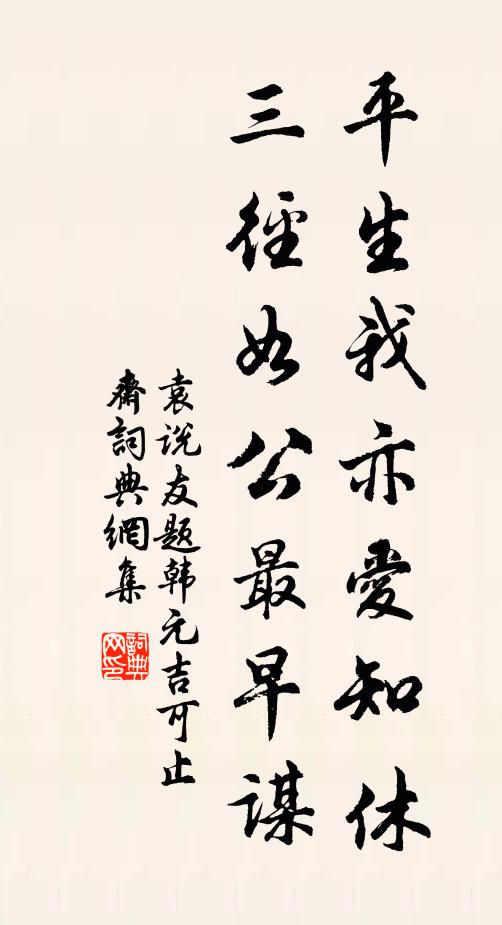 平生我亦愛知休
三徑如公最早謀
袁说友题韩元吉可止
齋詞典網集
詞典网印